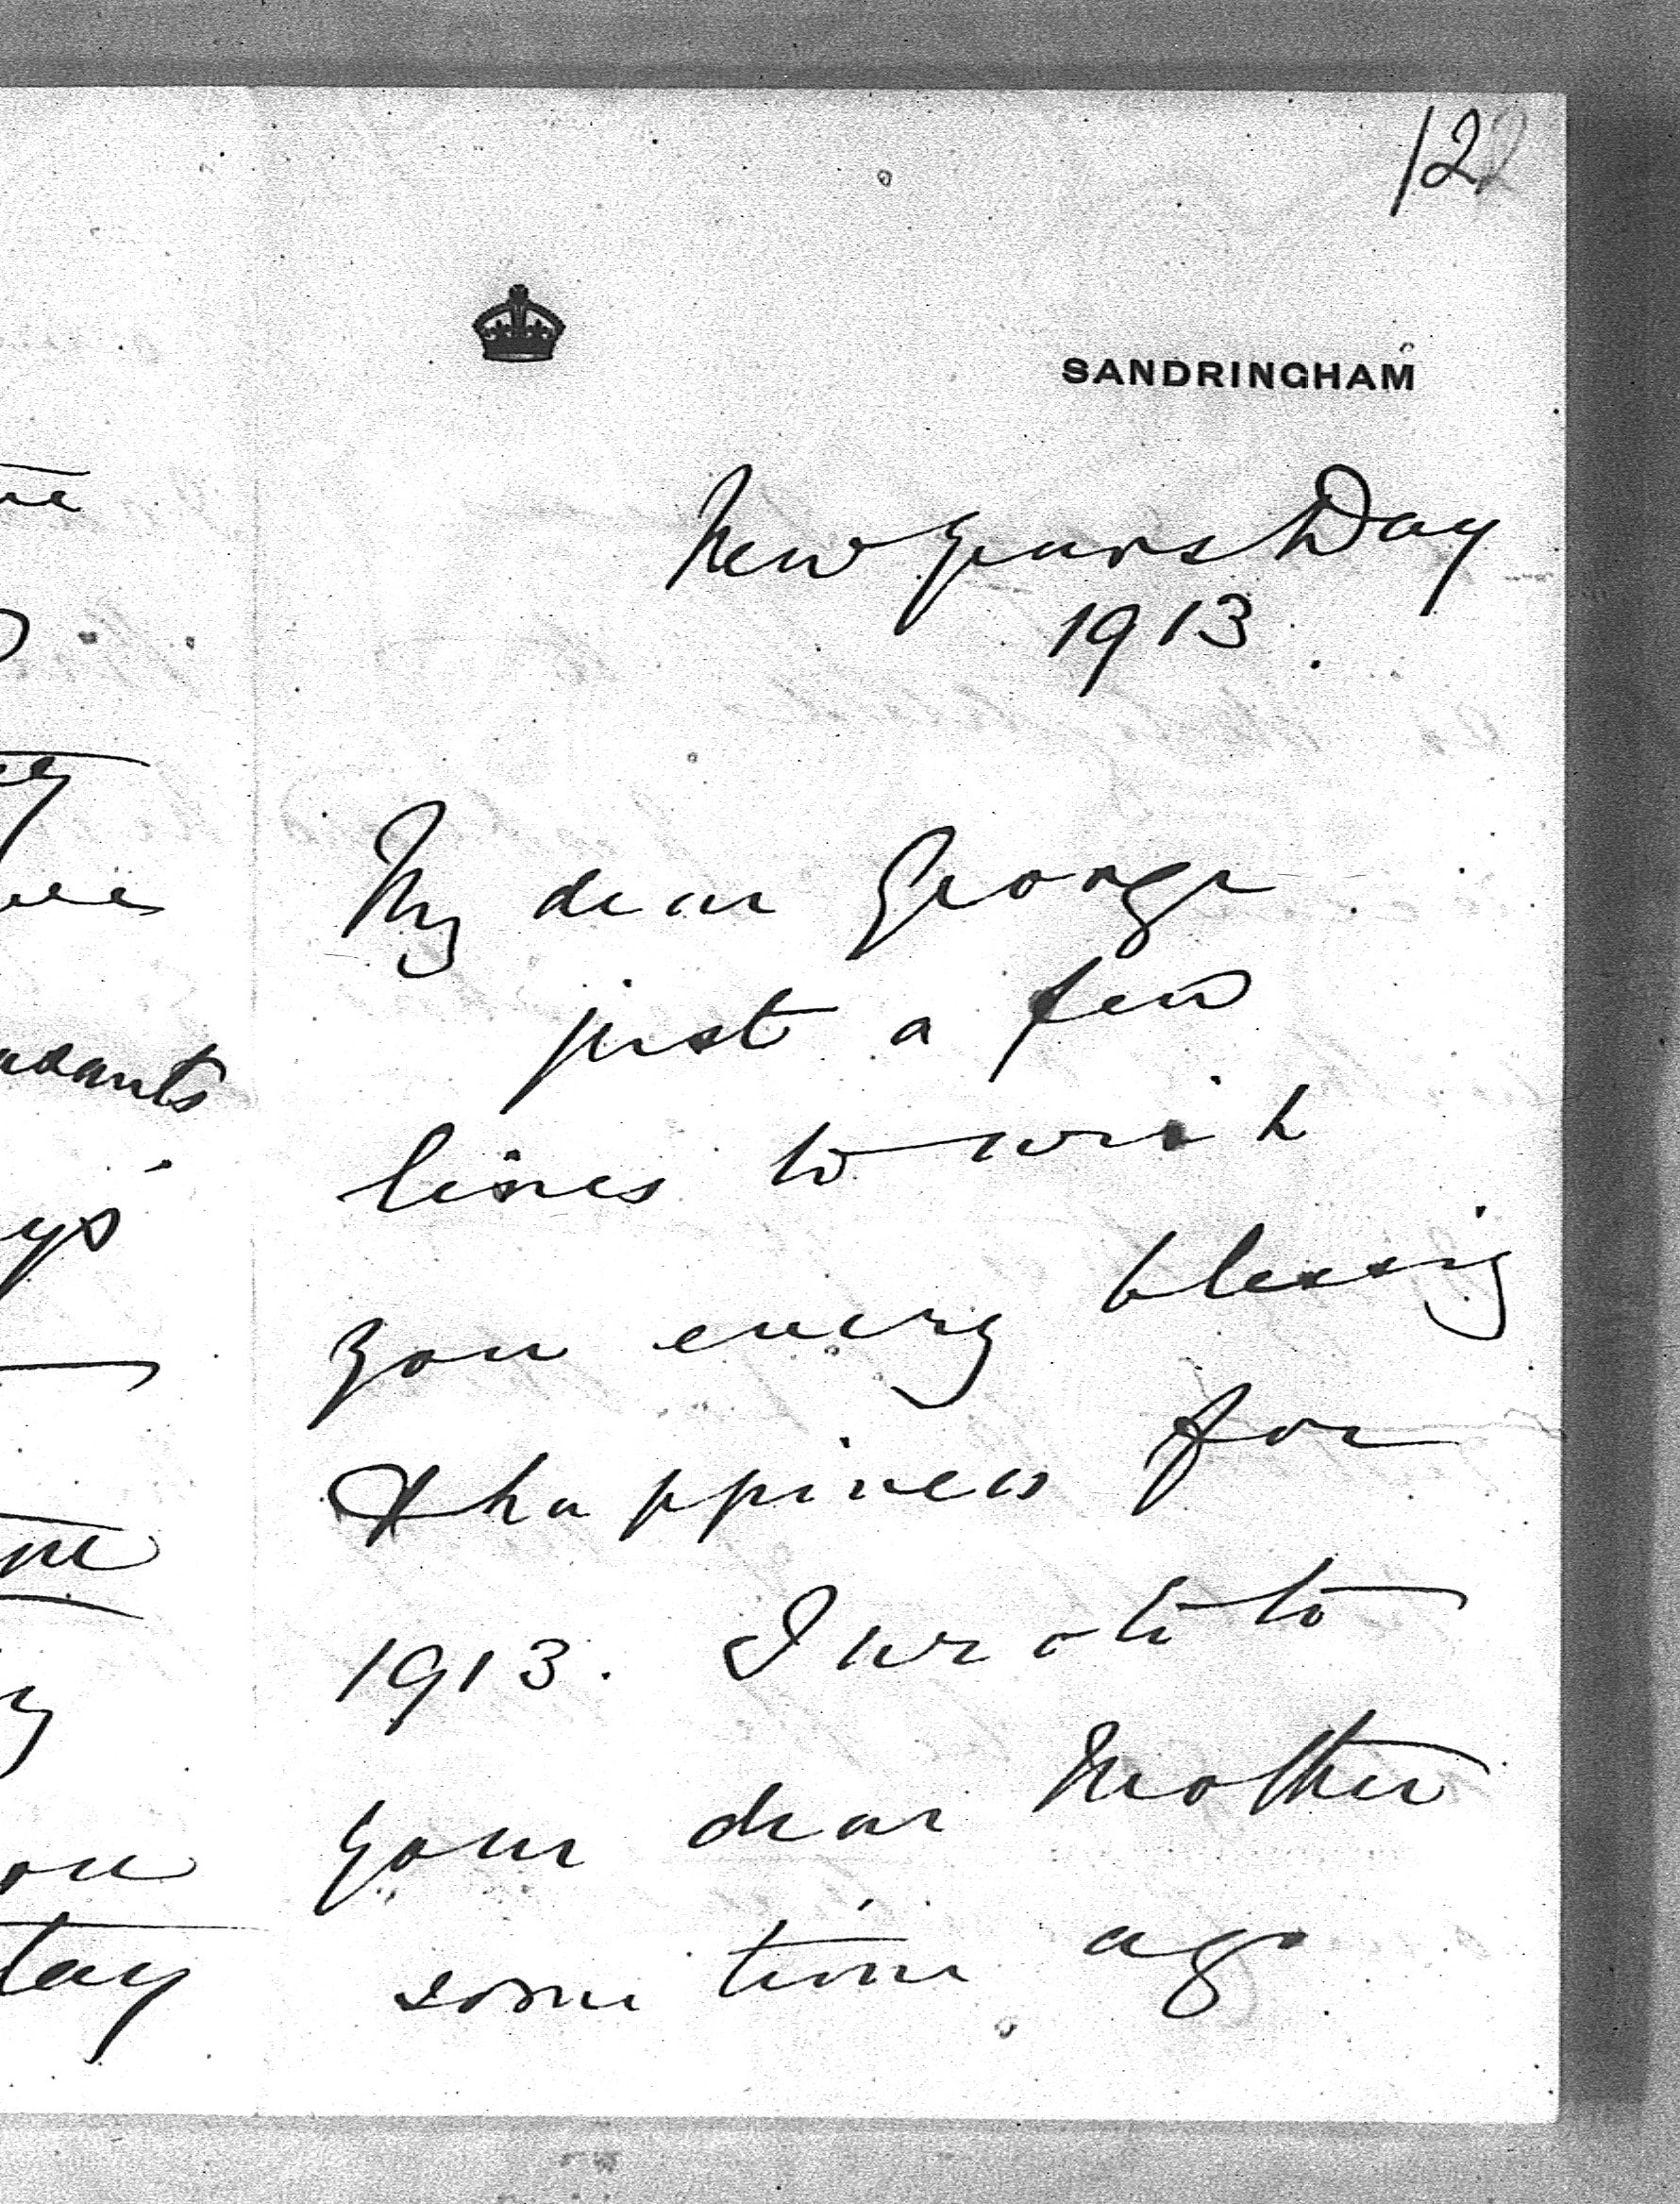 122
SANDRINGHAM
New Years Day
1913.
My dear George
just a few
lines to wish
you every blessing
& happiness for
1913. I wrote to
your dear Mother
some time ago